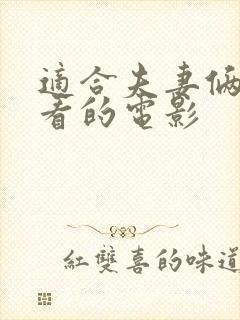 適合夫妻倆
看的電影
紅雙喜的味道